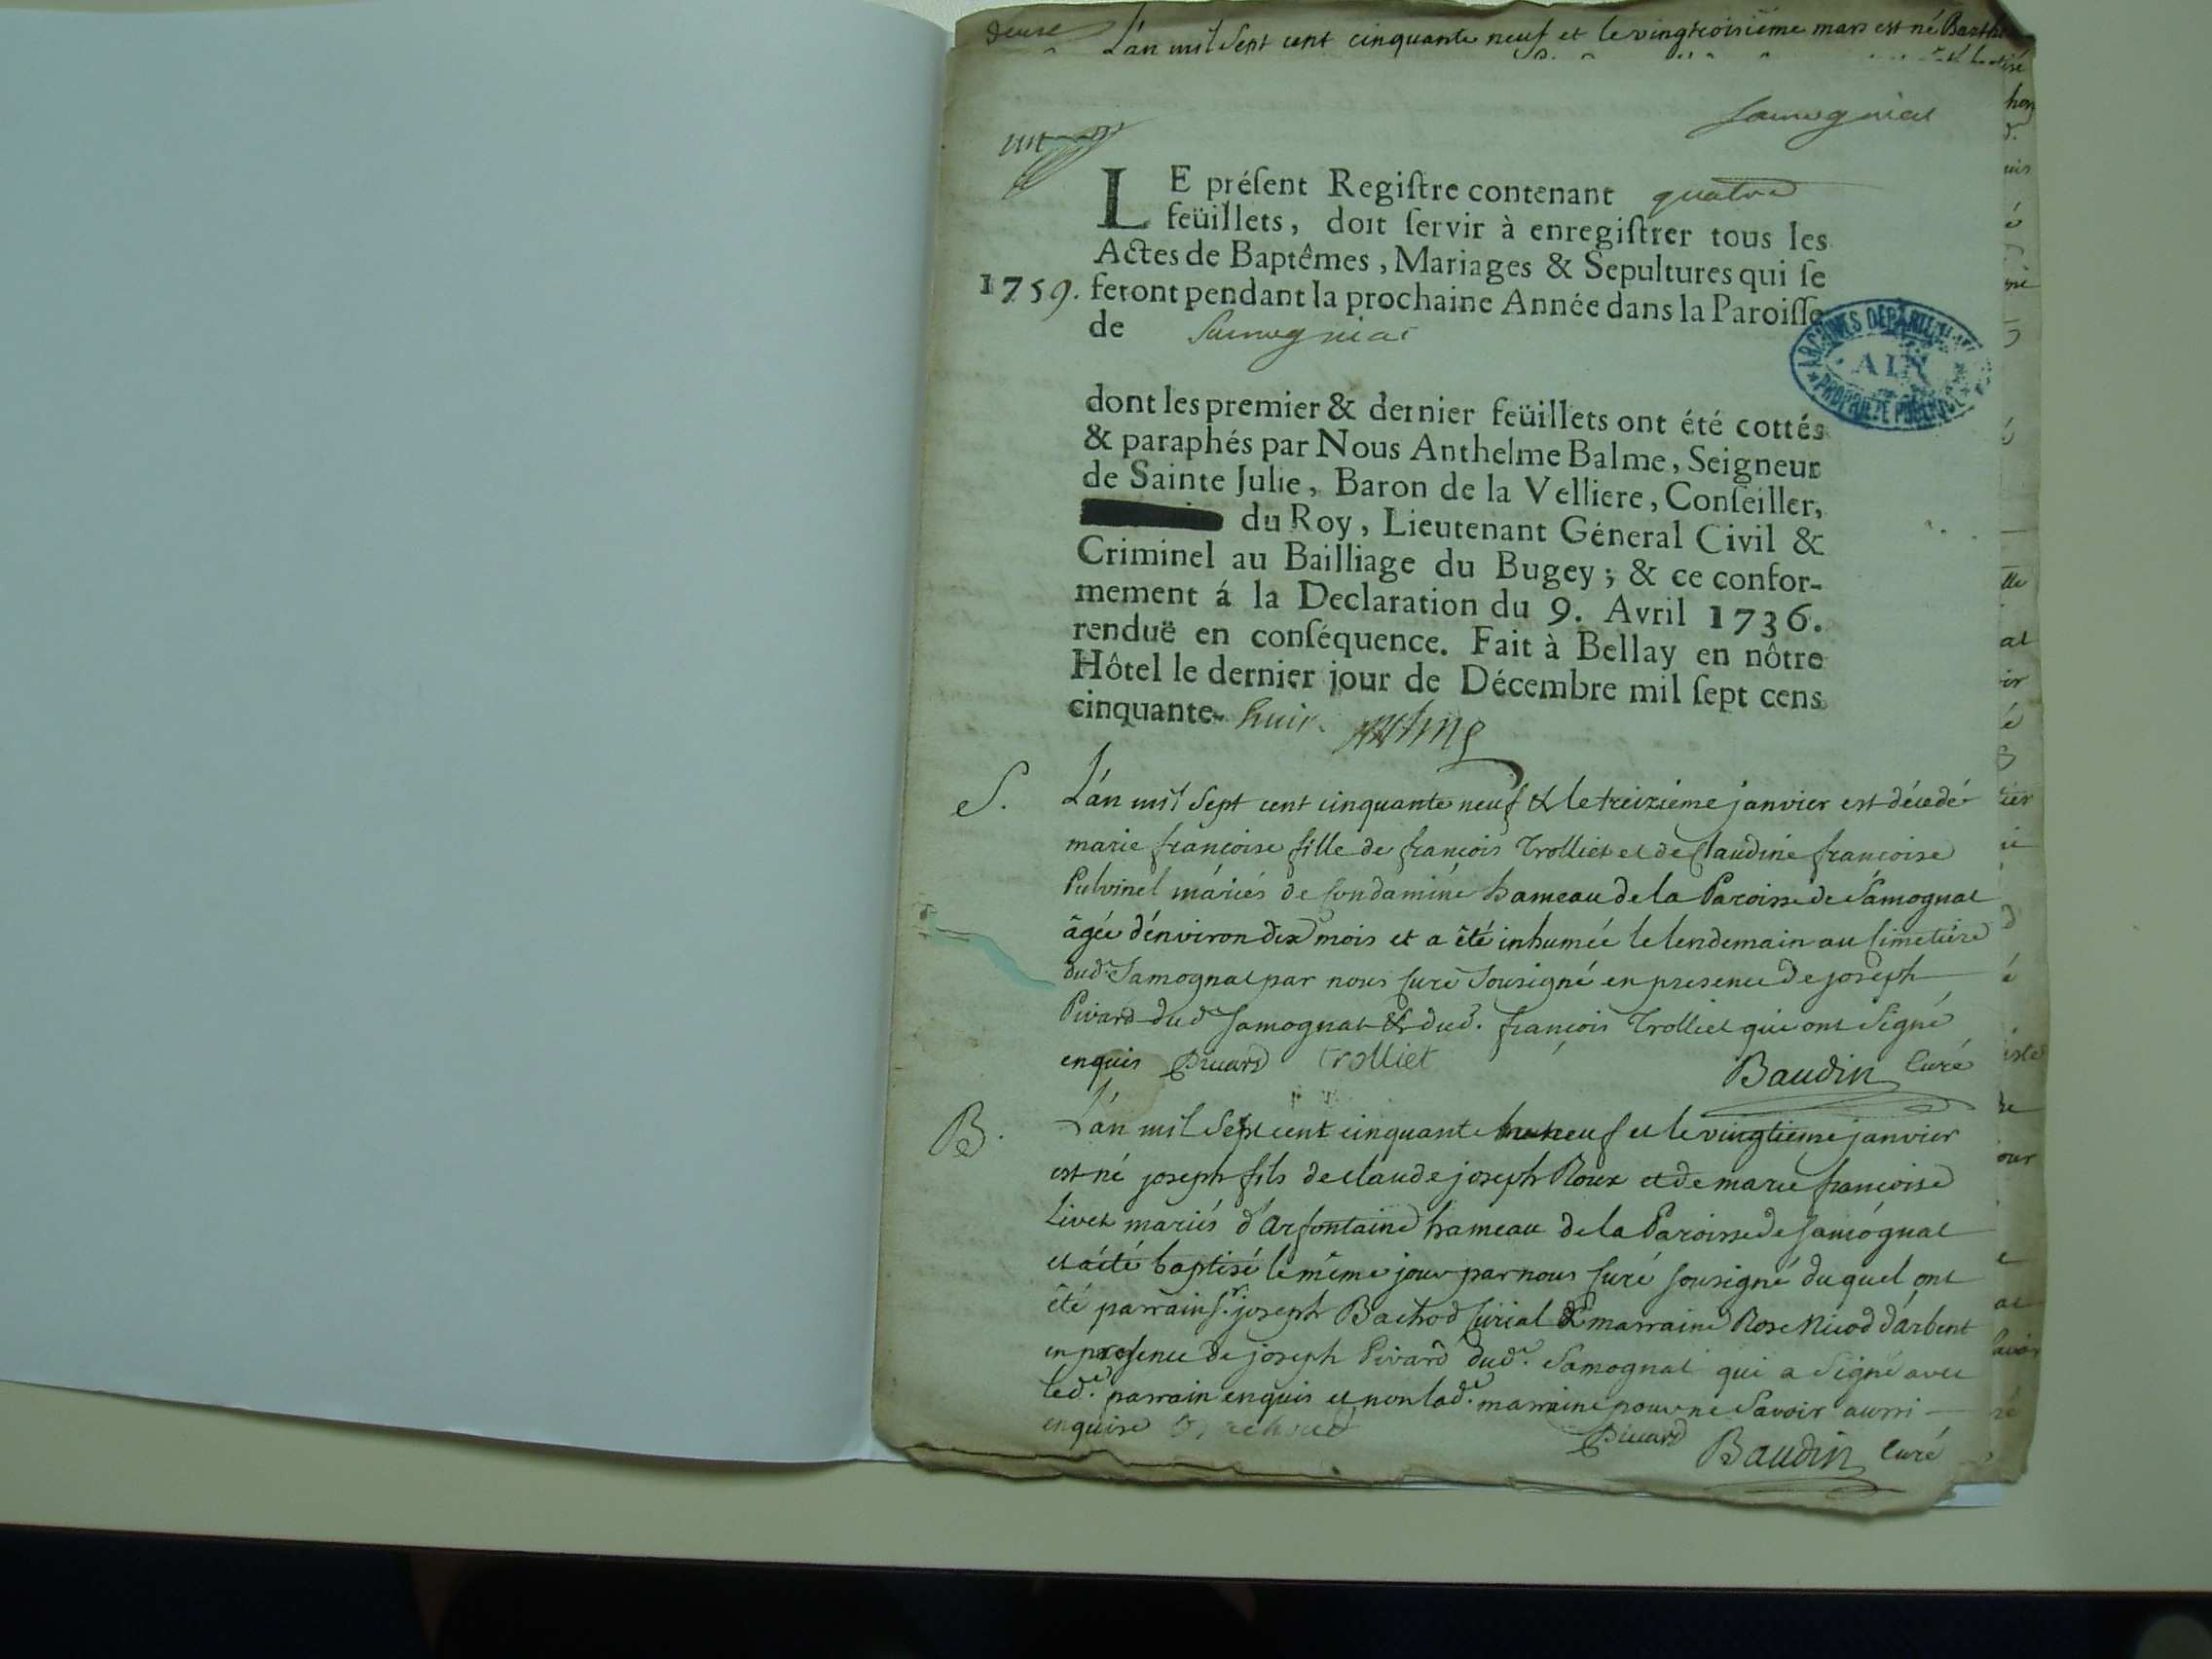 deuxe L'an mil Sept cent cinquante neuf et le vingtroisième mars est né Barthe
un
Samognias
LE préſent Regiſtre contenant quatre
feüillets, doit ſervir à enregiſtrer tous les
Actes de Baptêmes, Mariages & Sepultures qui ſe
1759. feront pendant la prochaine Année dans la Paroiſſe
de Samogniac
ARCHIVES DEPARTEMENTALES
AIN
PROPRIETE PUBLIQUE
dont les premier & dernier feüillets ont été cottés
& paraphés par Nous Anthelme Balme, Seigneur
de Sainte Julie, Baron de la Velliere, Conſeiller,
du Roy, Lieutenant Géneral Civil &
Criminel au Bailliage du Bugey; & ce confor-
mement á la Declaration du 9. Avril 1736.
renduë en conſéquence. Fait à Bellay en nôtre
Hôtel le dernier jour de Décembre mil ſept cens
cinquante- huit.
S. L'an mil Sept cent cinquante neuf & le treizième janvier est décedé
marie francoise fille de francois Trolliet et de Claudine francoise
Pulvinel máriés de Condamine hameau de la Paroisse de Samognat
âgée d'énviron dix mois et a été inhumée le lendemain au Cimetiére
dud. Samognat par nous Curé Sousigné en presence de joseph
Pivard dud Samognat & dud. francois Trolliet qui ont Signé
enquis Pivard trolliet Baudin Curé
B. L'an mil Sept cent cinquante neuf et le vingtieme janvier
est né joseph fils de claude joseph Roux et de marie francoise
Livet mariés d'Arfontaine hameau de la Paroisse de Samognat
et a été baptisé le même jour par nous Curé sousigné du quel ont
été parrain Sr. joseph Bachod Curial & marraine Rose Nicod d'árbent
en presence de joseph Pivard dud. Samognat qui a Signé avec
led. parrain enquis et non lad. marraine pour ne Savoir aussi
enquise Bachod Pivard Baudin Curé